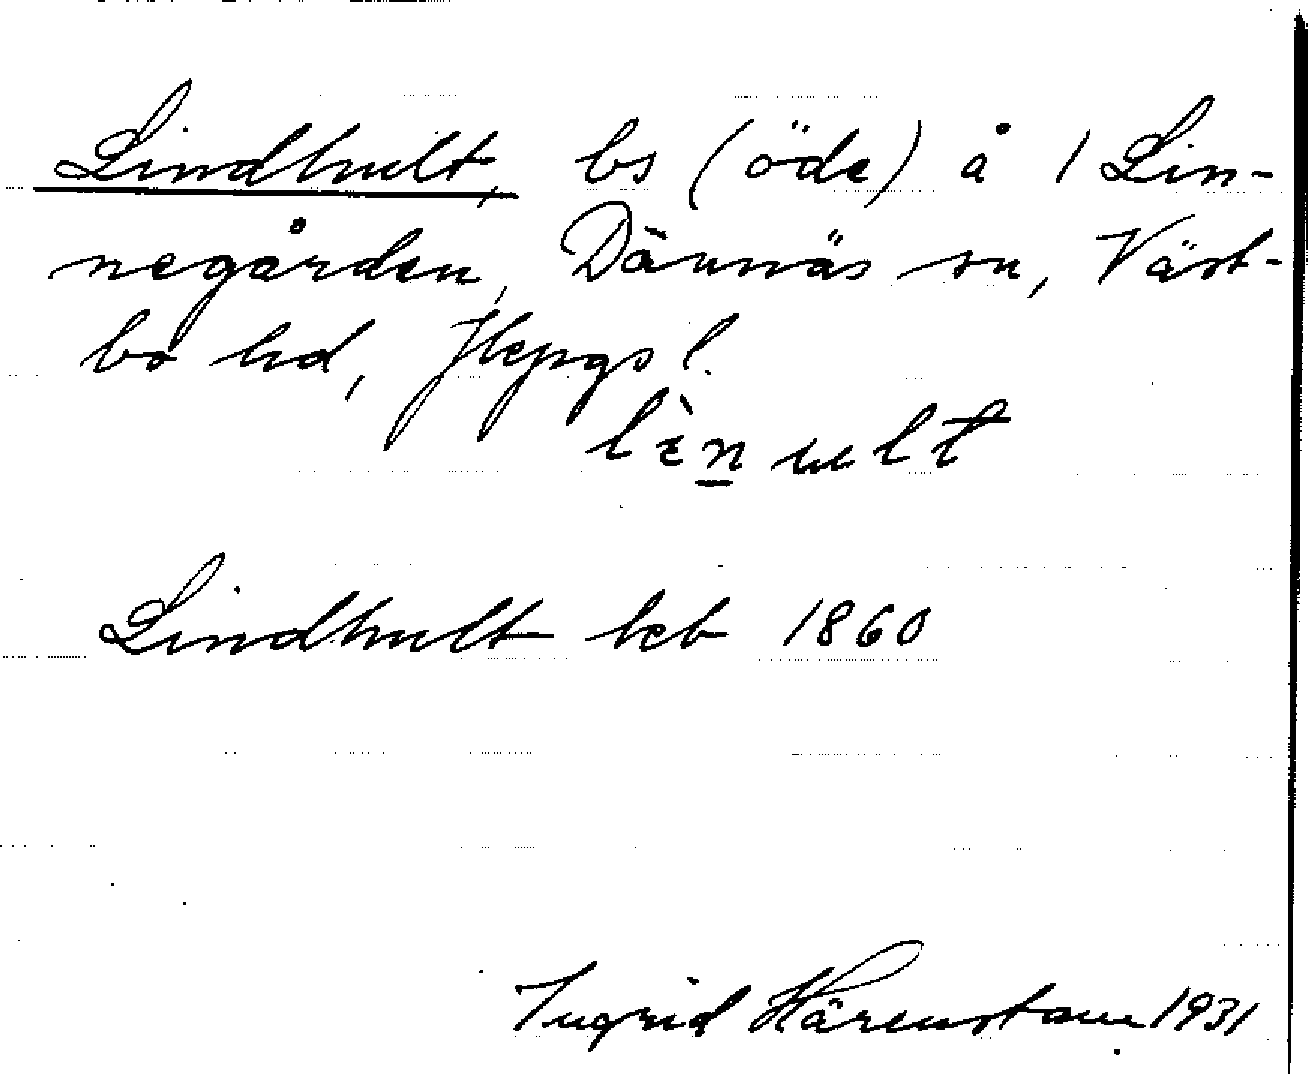 Lindhult, bs (öde) å 1 Lin-
negården, Dannäs sn, Väst-
bo hd, Jkpgs l.
lὲn̲ ult
Lindhult hfb 1860
Ingrid Härenstam 1931